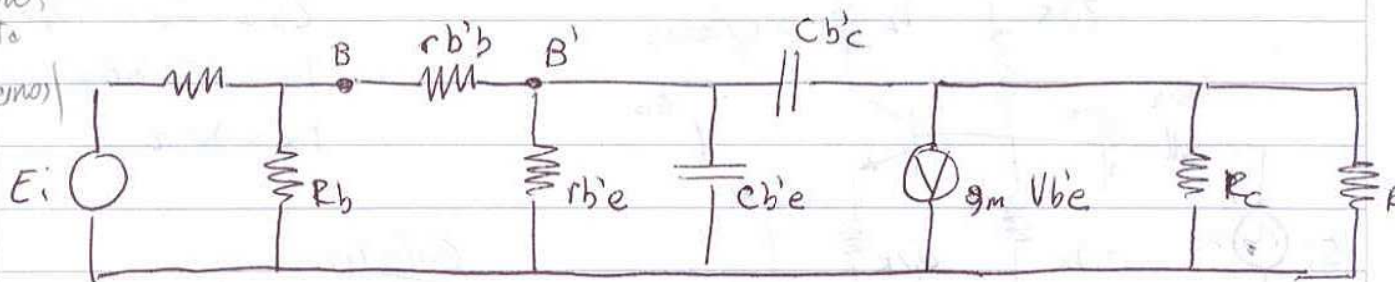 Cb'c
B rb'b B'
Ei Rb rb'e Cb'e gm Vb'e Rc